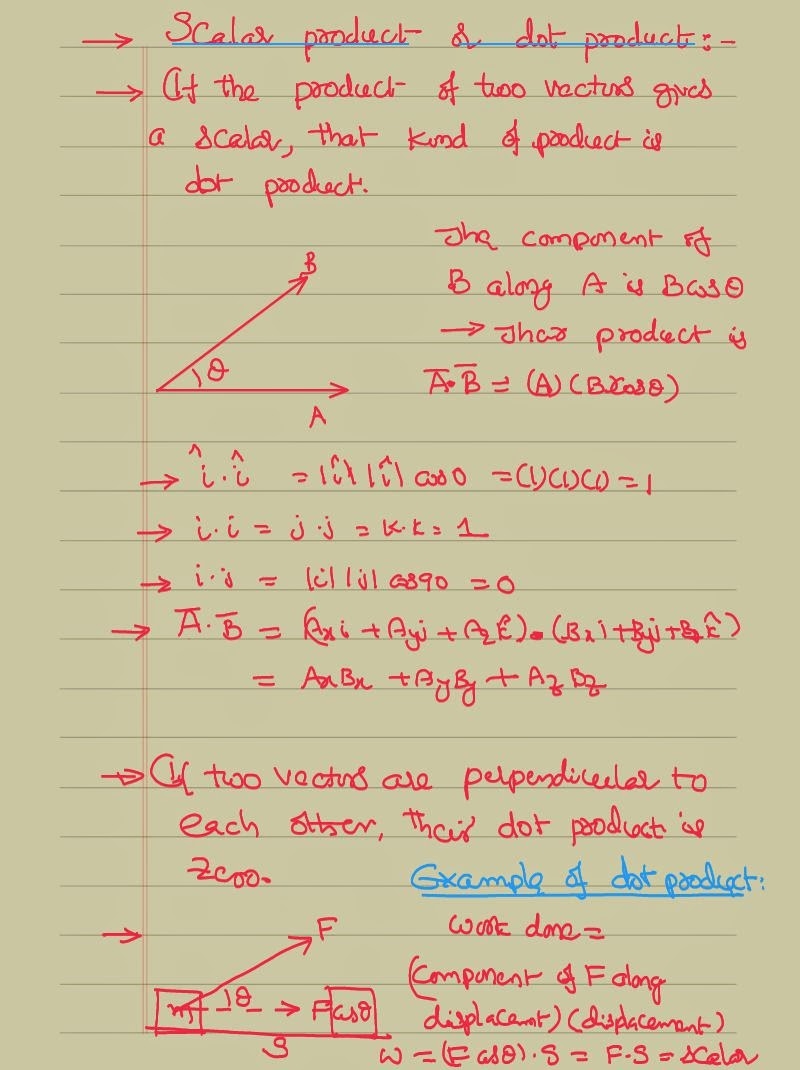 → Scalar product or dot product:-
→ If the product of two vectors gives
a scalar, that kind of product is
dot product.
B
θ
A
The component of
B along A is Bcosθ
→ Their product is
A̅·B̅ = (A)(Bcosθ)
→ î·î = |î| |î| cos0 = (1)(1)(1) = 1
→ i·i = j·j = k·k = 1
→ i·j = |i| |j| cos90 = 0
→ A̅·B̅ = (Axi + Ayj + Azk̂)·(Bxi+Byj+Bzk̂)
= AxBx + AyBy + AzBz
→ If two vectors are perpendicular to
each other, their dot product is
zero.
Example of dot product:
→
F
m
θ
→ Fcosθ
S
Work done =
(Component of F along
displacement)(displacement)
W = (F cosθ)·S = F·S = scalar